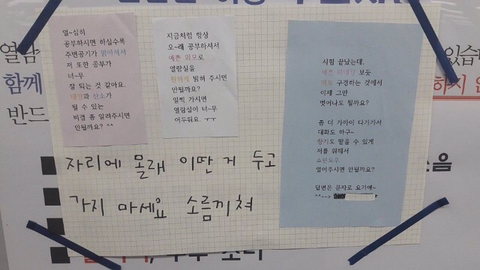 열~심히
공부하시면 하실수록
주변공기가 맑아져서
저 또한 공부가
너~무
잘 되는 것 같아요.
될 수 있는
비결 좀 알려주시면
안될까요? ^^
지금처럼 항상
오~래 공부하셔서
예쁜 외모로
열람실을
밝혀 주시면
안될까요?
일찍 가시면
열람실이 너~무
어두워요 ㅜㅜ
시험 끝났는데,
예쁜 보듯
구경하는 것에서
이제 그만
벗어나도 될까요?
좀 더 가까이 다가가서
대화도 하구~
향기도 맡을 수 있게
저를 위해서
쇼윈도우
열어주시면 안될까요?
답변은 문자로 요기에~
자리에 몰래 이딴 거 두고
가지 마세요 소름끼쳐
열람
함께
반드
있습니
하지 않